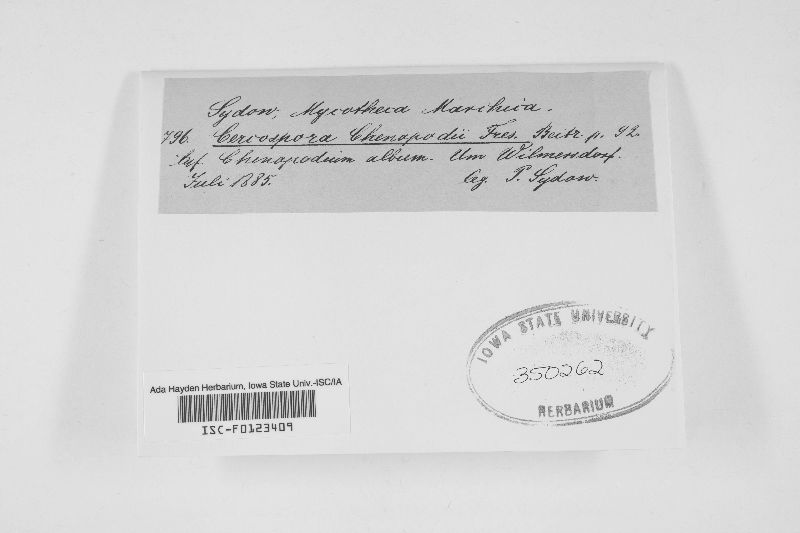 Sydow, Mycotheca Marchica.
796. Cercospora Chenopodii Fres. Beitr. p. 92.
Auf Chenopodium album. Um Wilmersdorf.
Juli 1885. leg. P. Sydow.
IOWA STATE UNIVERSITY
350262
HERBARIUM
Ada Hayden Herbarium, Iowa State Univ.-ISC/IA
ISC-F0123409